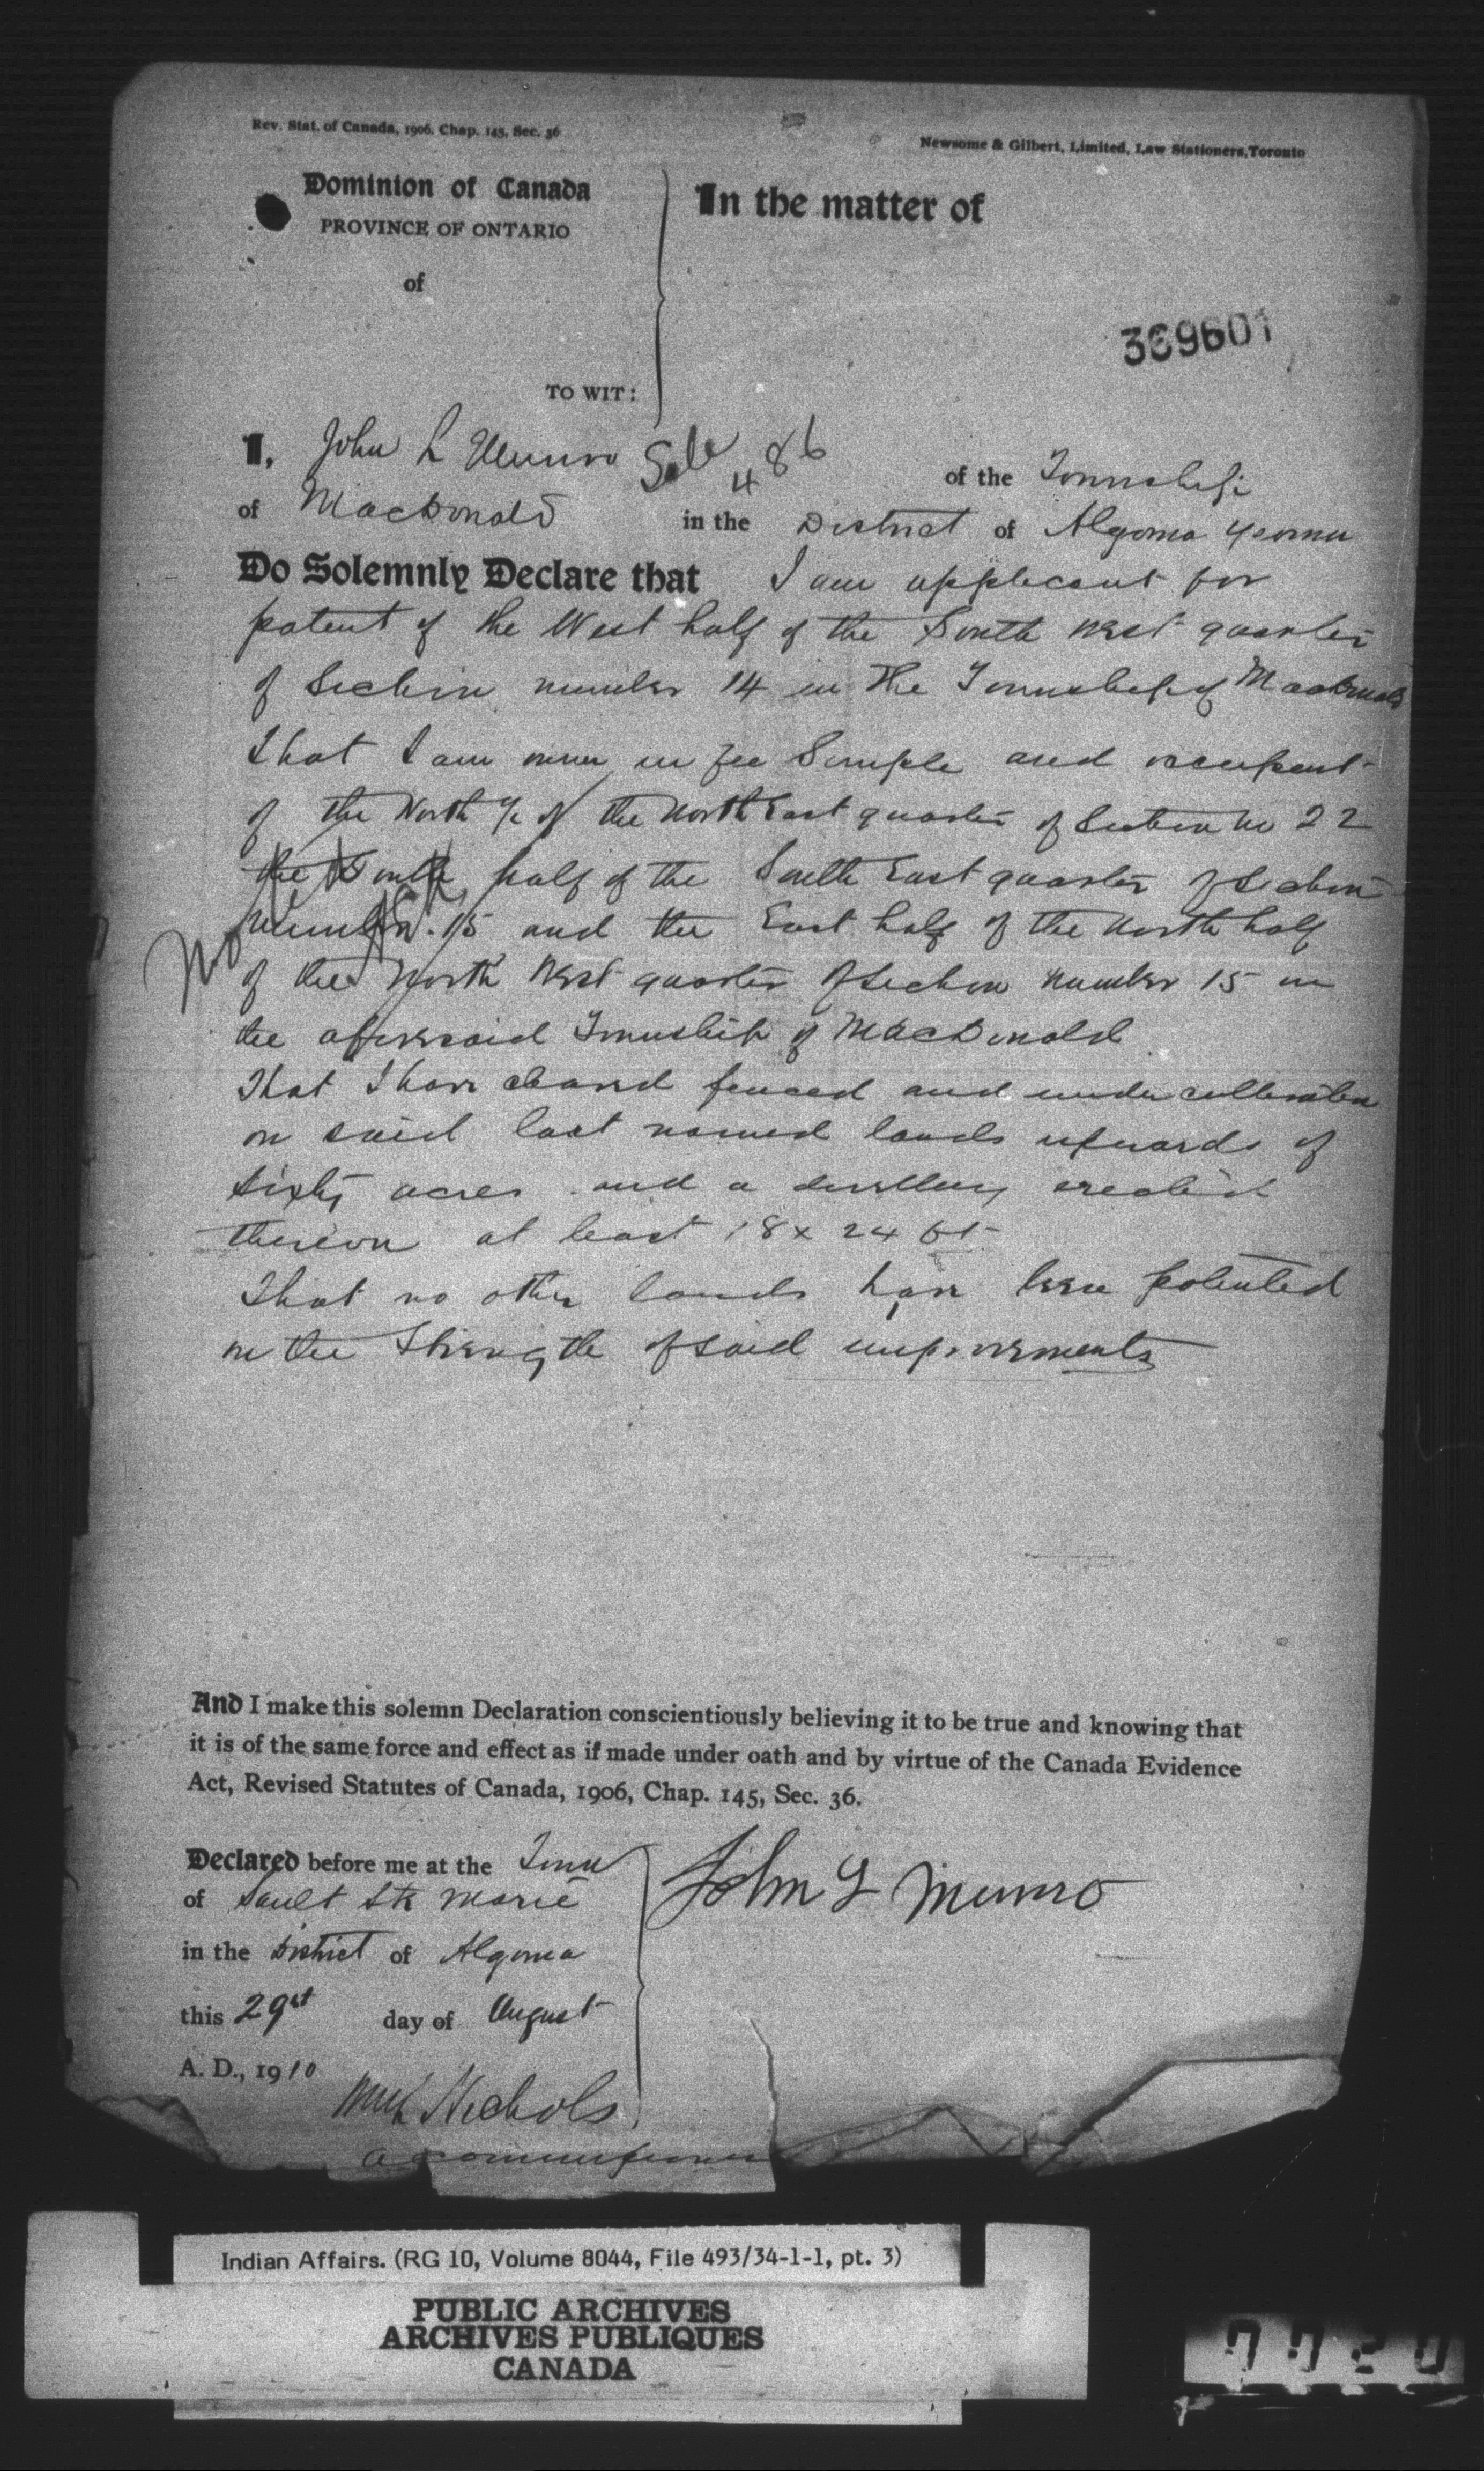 Rev. Stat. of Canada, 1906, Chap. 145, Sec. 36
Newsome & Gilbert, Limited, Law Stationers, Toronto
Dominion of Canada
PROVINCE OF ONTARIO
of
TO WIT:
In the matter of
369601
I, John L Munro Sale 486 of the Township
of MacDonald in the District of Algoma Yeoman
Do Solemnly Declare that I am applicant for
patent of the West half of the South West quarter
of Section number 14 in the Township of MacDonald
That I am owner in fee Simple and occupant
of the North ½ of the North East quarter of Section No 22
the South half of the South East quarter of Section
Number 15 and the East half of the North half
No
of the North West quarter of Section number 15 in
the aforesaid Township of MacDonald
That I have cleared fenced and under cultivation
on said last named lands upwards of
sixty acres and a dwelling erected
thereon at least 18 x 24 ft
That no other lands have been patented
on the Strength of said improvements
And I make this solemn Declaration conscientiously believing it to be true and knowing that
it is of the same force and effect as if made under oath and by virtue of the Canada Evidence
Act, Revised Statutes of Canada, 1906, Chap. 145, Sec. 36.
Declared before me at the Town
of Sault Ste Marie
in the District of Algoma
this 29st day of August
A. D., 1910
John L Munro
Nichols
a commissioner
Indian Affairs. (RG 10, Volume 8044, File 493/34-1-1, pt. 3)
PUBLIC ARCHIVES
ARCHIVES PUBLIQUES
CANADA